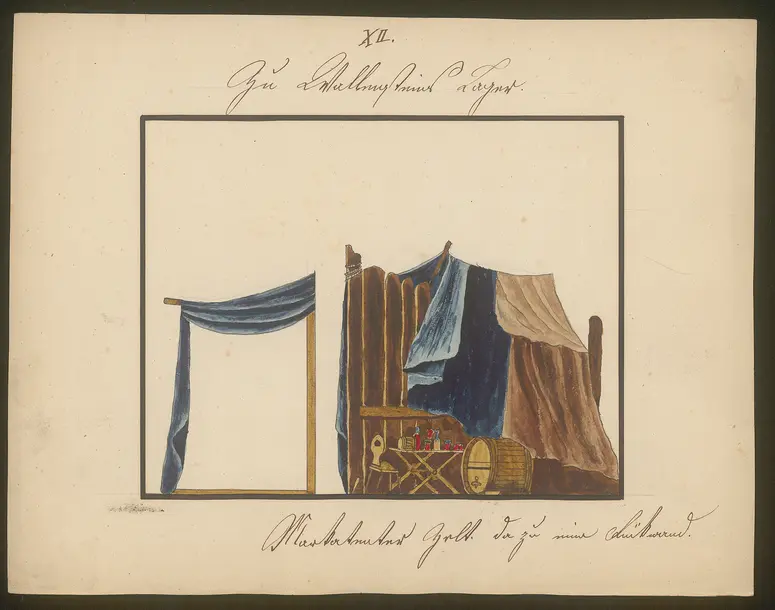 XII.
Zu Wallensteins Lager.
Marketenter Zelt. dazu eine Rückwand.